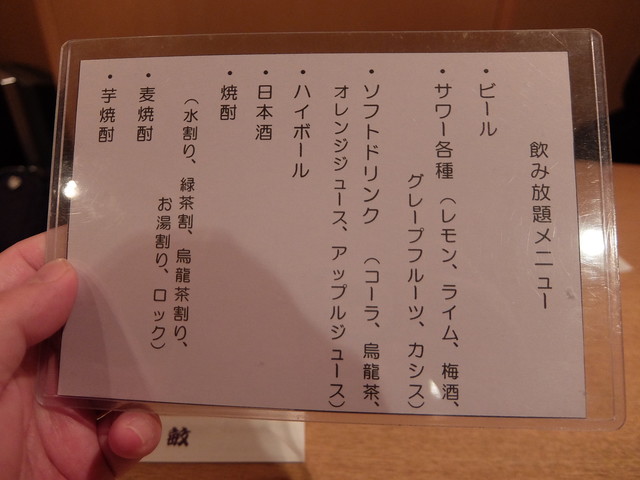 飲み放題メニュー
・ビール
・サワー各種(レモン、ライム、梅酒、
グレープフルーツ、カシス)
・ソフトドリンク (コーラ、烏龍茶、
オレンジジュース、アップルジュース)
・ハイボール
・日本酒
・焼酎
(水割り、緑茶割、烏龍茶割り、
お湯割り、ロック)
・麦焼酎
・芋焼酎